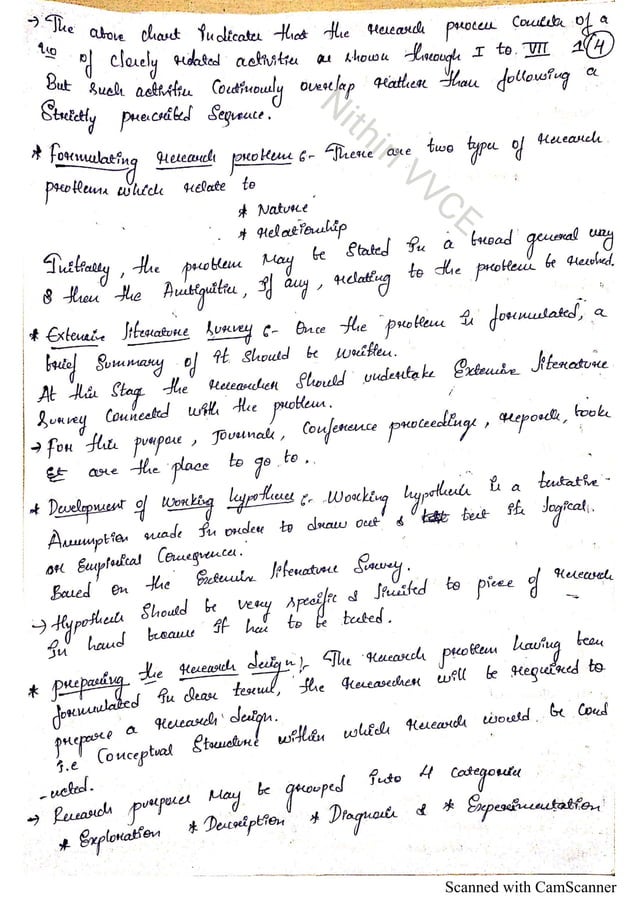 → The above chart Indicates that the research process Consists of a
no of closely related activities as shown through I to VII 1 4
But such activities Continously overlap rather than following a
Strictly prescribed Sequence.
* Formulating research problem :- There are two types of research
problems which relate to
* Nature
* relationship
Initially, the problem May be Stated In a broad general way
& then the Ambiguities, If any, relating to the problem be resolved.
* Extensive literature Survey :- Once the problem Is formulated, a
brief Summary of It should be written.
At this Stag the researcher Should undertake Extensive literature
Survey Connected with the problem.
→ For this purpose, Journals, Conference proceedings, reports, books
Et are the place to go to..
* Development of working hypotheses :- Working hypothesis Is a tentative
Assumption made In order to draw out & test its logical.
or Empirical Consequences.
Based on the Extensive literature Survey.
→ Hypothesis Should be very specific & limited to piece of research
In hand because It has to be tested.
* preparing the research design :- The research problem having been
formulated In clear terms, the researcher will be required to
prepare a research design.
I.e Conceptual Structure within which research would be Cond
-ucted.
→ Research purposes May be grouped Into 4 Categories
* Exploration * Description * Diagnosis & * Experimentation
Nithin VVCE
Scanned with CamScanner